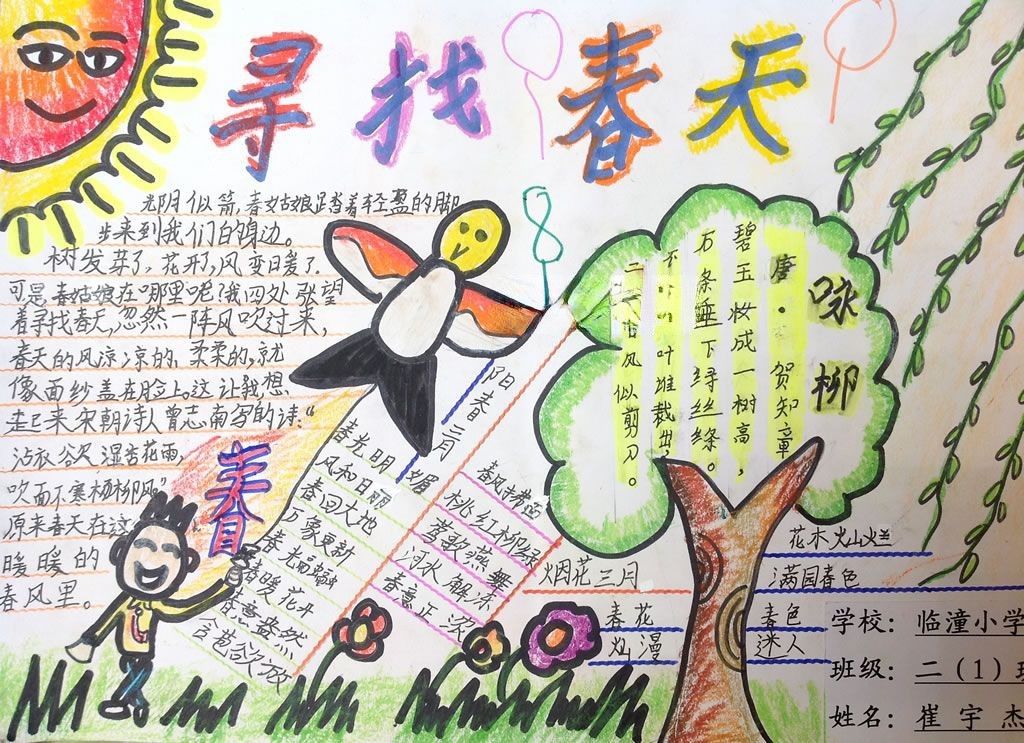 寻找春天
光阴似箭,春姑娘踏着轻盈的脚
步来到我们的身边。
树发芽了,花开了,风变日暖了.
可是春姑娘在哪里呢?我四处张望
着寻找春天,忽然一阵风吹过来,
春天的风凉凉的、柔柔的,就
像面纱盖在脸上。这让我想
起来宋朝诗人曾志南写的诗:“
沾衣欲湿杏花雨,
吹面不寒杨柳风。”
原来春天在这
暖暖的
春风里。
春
阳春二月
春光明媚
风和日丽
春回大地
万象更新
春暖花开
春意盎然
含苞欲放
春风拂面
桃红柳绿
莺歌燕舞
河水解冻
春意正浓
咏柳
唐·贺知章
碧玉妆成一树高,
万条垂下绿丝绦。
不 叶谁裁出,
二 春风似剪刀。
烟花三月
春花
灿漫
花木灿烂
满园春色
春色
迷人
学校: 临潼小学
班级: 二(1)班
姓名: 崔宇杰